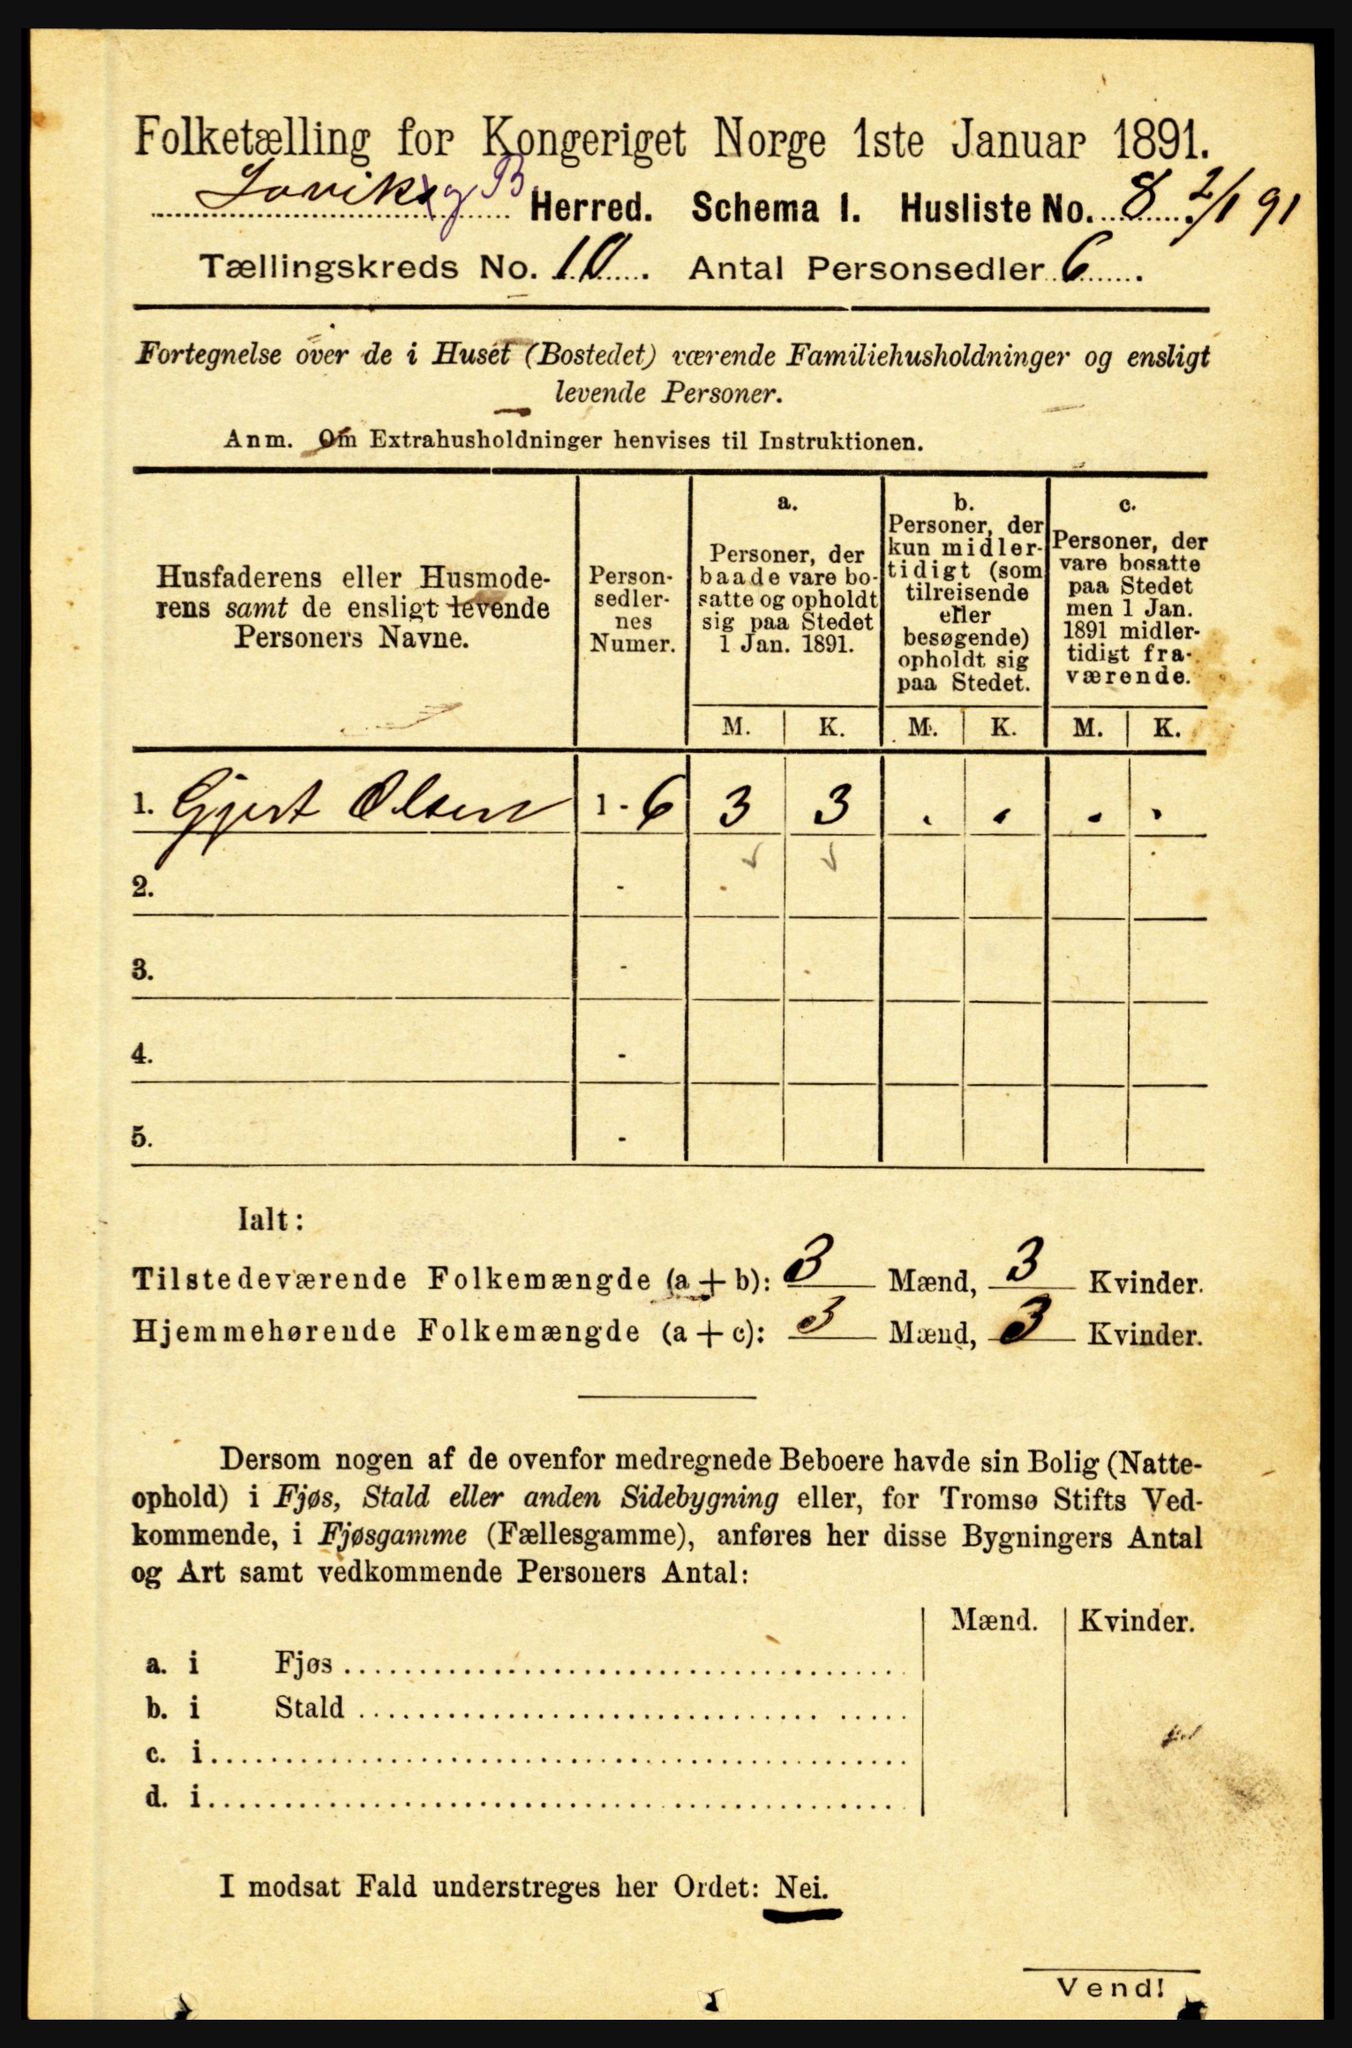 Folketælling for Kongeriget Norge 1ste Januar 1891.
Lavik og B. Herred. Schema I. Husliste No. 8. 2/1 91
Tællingskreds No. 10. Antal Personsedler 6.
Fortegnelse over de i Huset (Bostedet) værende Familiehusholdninger og ensligt
levende Personer.
Anm. Om Extrahusholdninger henvises til Instruktionen.
Husfaderens eller Husmode-
rens samt de ensligt levende
Personers Navne.
Person-
sedler-
nes
Numer.
a.
Personer, der
baade vare bo-
satte og opholdt
sig paa Stedet
1 Jan. 1891.
b.
Personer, der
kun midler-
tidigt (som
tilreisende
eller
besøgende)
opholdt sig
paa Stedet.
c.
Personer, der
vare bosatte
paa Stedet
men 1 Jan.
1891 midler-
tidigt fra-
værende.
M. K. M. K. M. K.
1. Gjert Olsen 1 - 6 3 3 . . . .
2. -
3. -
4. -
5. -
Ialt:
Tilstedeværende Folkemængde (a + b): 3 Mænd, 3 Kvinder.
Hjemmehørende Folkemængde (a + c): 3 Mænd, 3 Kvinder.
Dersom nogen af de ovenfor medregnede Beboere havde sin Bolig (Natte-
ophold) i Fjøs, Stald eller anden Sidebygning eller, for Tromsø Stifts Ved-
kommende, i Fjøsgamme (Fællesgamme), anføres her disse Bygningers Antal
og Art samt vedkommende Personers Antal:
Mænd. Kvinder.
a. i Fjøs
b. i Stald
c. i
d. i
I modsat Fald understreges her Ordet: Nei.
Vend!